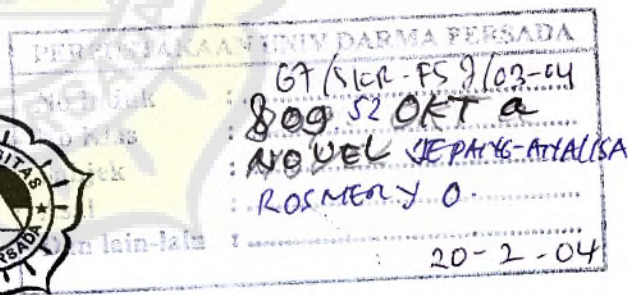 PERPUSTAKAAN UNIV DARMA PERSADA
No Induk : 67/SKR-FSJ/03-04
No Klas : 809 52 OKT a
Subjek : NOVEL JEPANG-ANALISA
: ROSMERY O.
Dan lain-lain :
20-2-04
ITAS